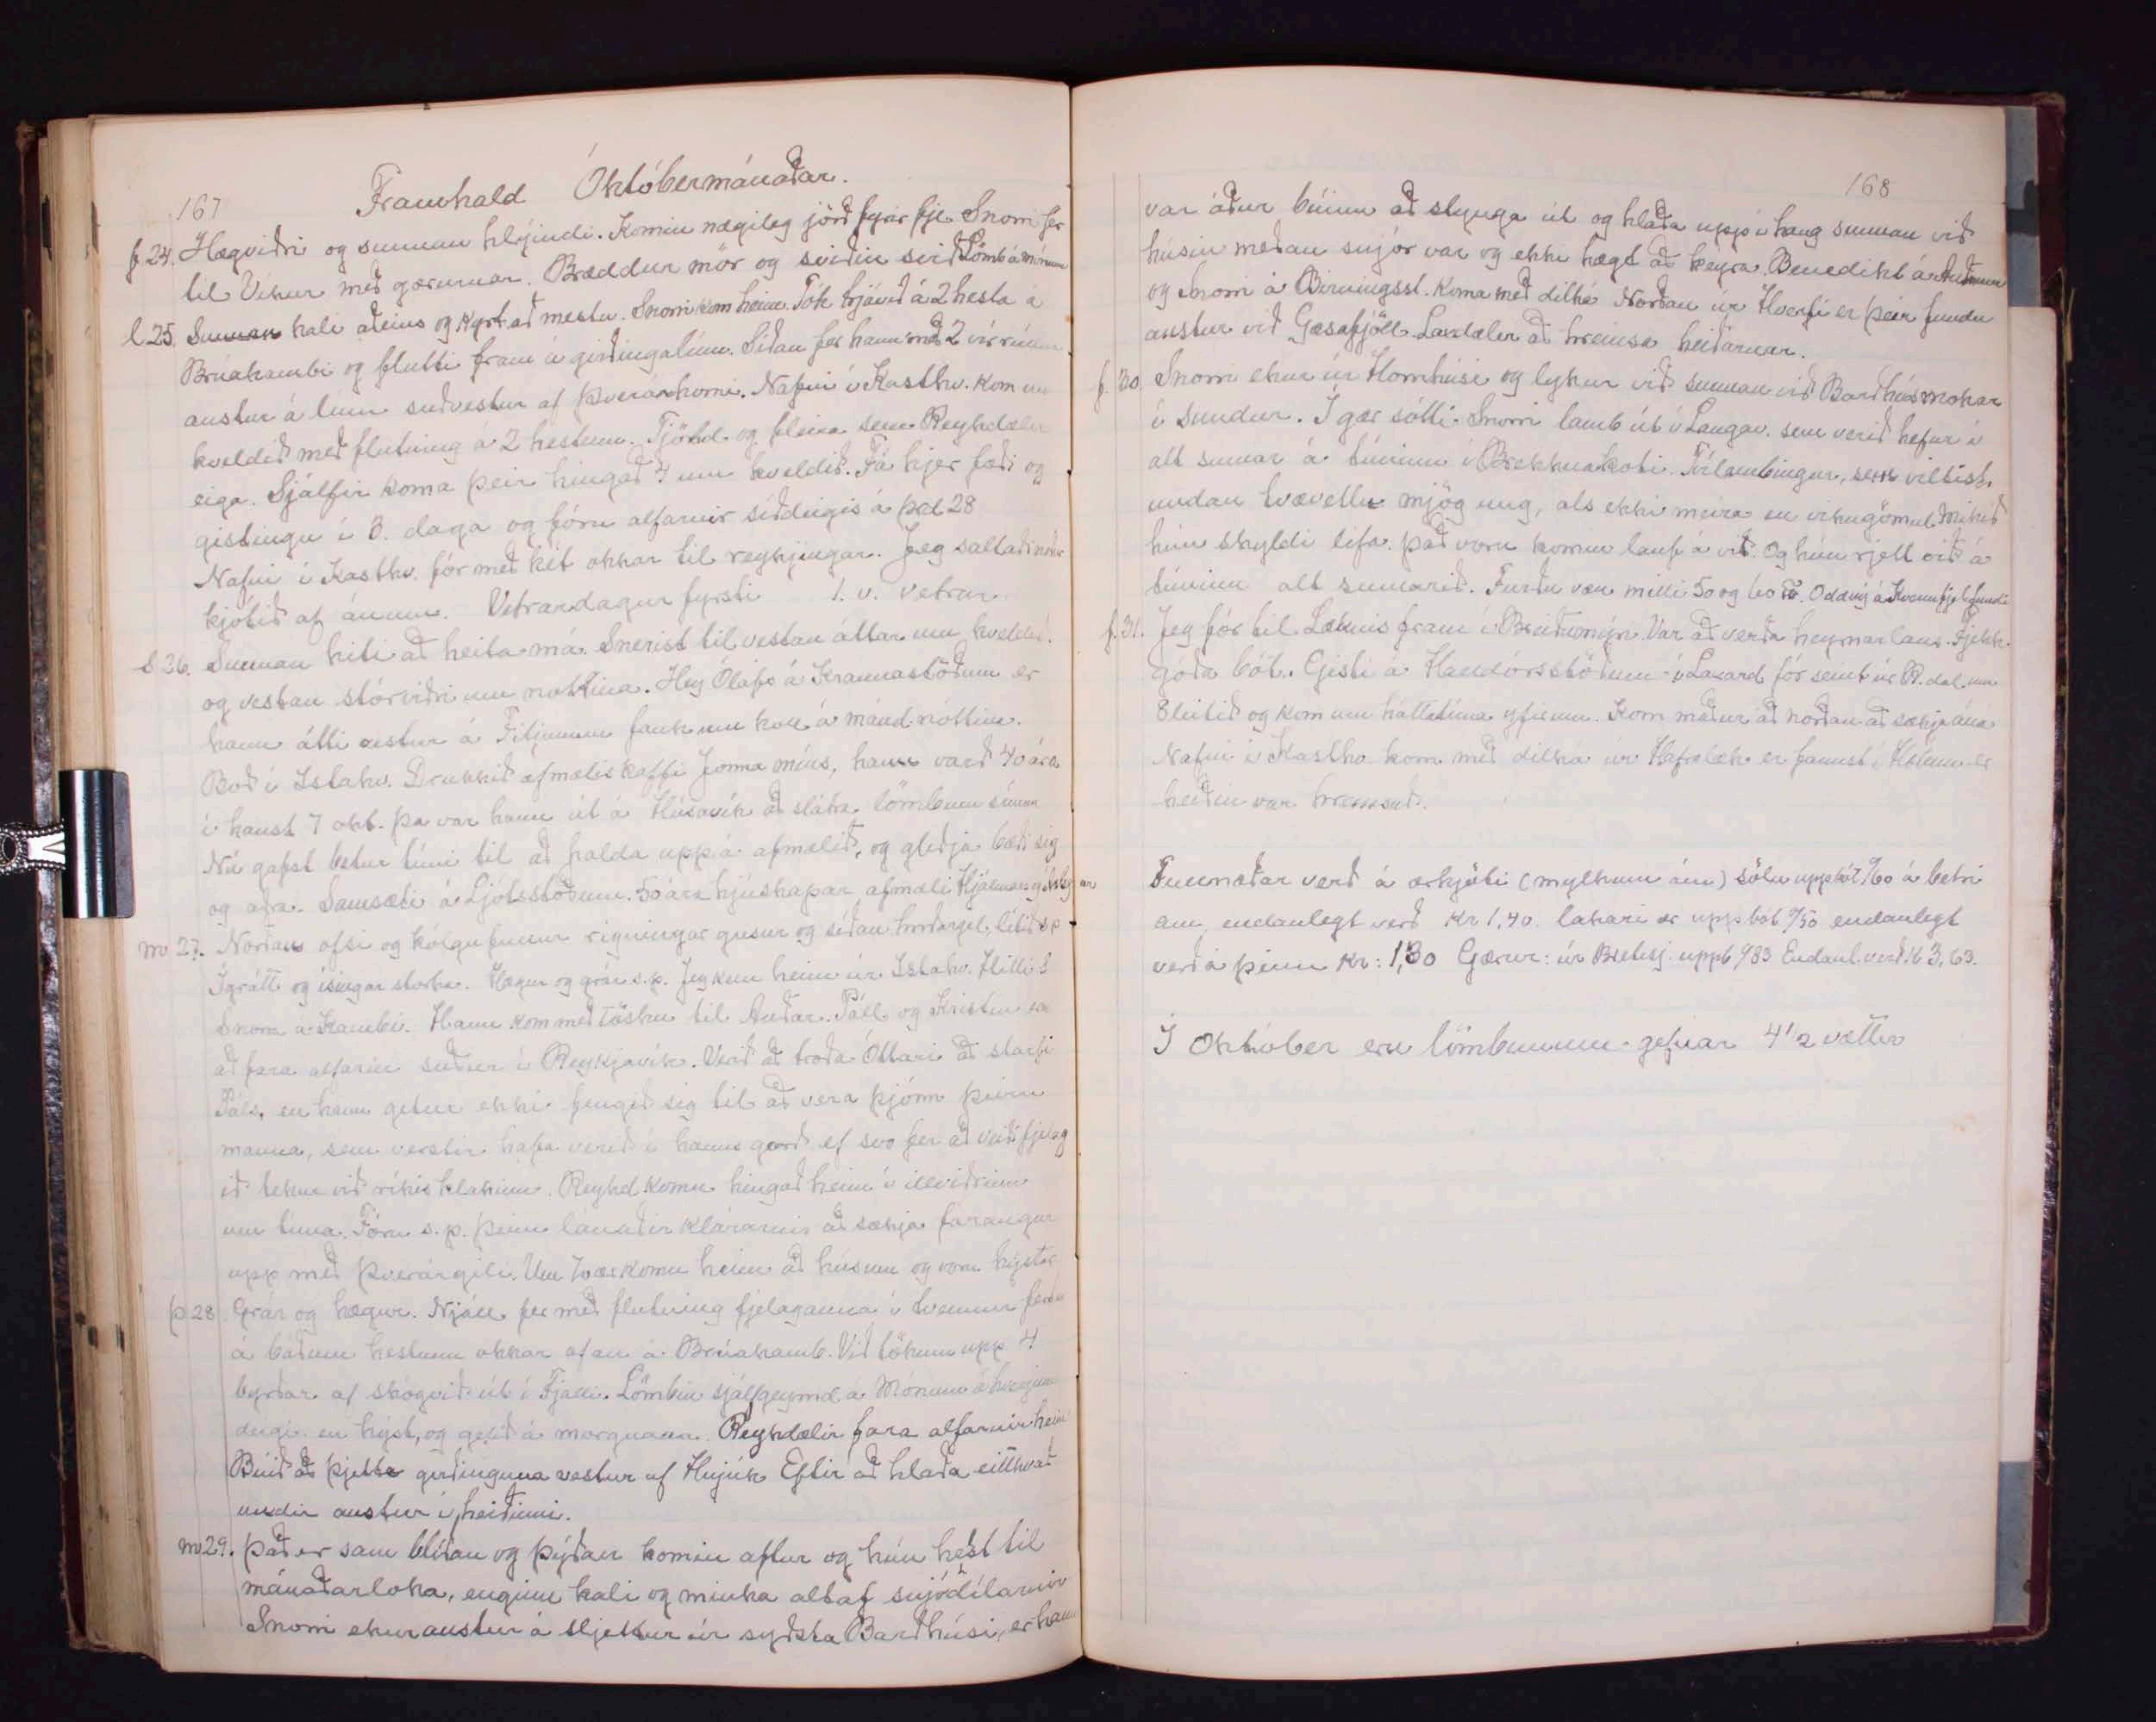 167
Framhald Októbermánaðar.
f 24. Hægviðri og sunnan hlýindi. Komin nægileg jörð fyrir fje. Snorri fer
til Víkur með gærurnar. Bræddur mör og sviðin svið Lömb á mónum
l 25. Sunnan kali aðeins og kyrt að mestu. Snorri kom heim. Tók trjávið á 2 hesta á
Brúakambi og flutti fram á girðingalínu. Síðan fer hann með 2 vírrúllur
austur á línu suðvestur af Þverárhorni. Nafni í Kasthv. kom um
kveldið með flutning á 2 hestum. Tjöld og fleira sem Reykdælir
eiga. Sjálfir koma þeir hingað 7 um kveldið. Fá hjer fæði og
gistingu í 3. daga og fóru alfarnir síðdegis á þrd 28
Nafni í Kasthv. fór með ket okkar til reykjingar. Jeg saltaði niður
kjötið af ánum. Vetrardagur fyrsti 1. v. vetrar.
S 26. Sunnan hiti að heita má. Snerist til vestan áttar um kveldið.
og vestan stórviðri um nóttina. Hey Ólafs á Kraunastöðum er
hann átti austur á Fitjunum fauk um koll á mánud nóttina.
Boð í Ystahv. Drukkið afmæliskaffi Jonna míns, hann varð 40 ára
í haust 7 okt. þa var hann út á Húsavík að slátra lömbum sínum
Nú gafst betur tími til að halda uppá afmælið, og gleðja bæði sig
og aðra. Samsæti á Ljótsstöðum. 50 ára hjúskapar afmæli Hjálmars og Áslaugar
m 27. Norðan ofsi og kólgu fennur rigningar gusur og síðan hríðarjel, lítið s.p.
Ígrátt og ísingar storka. Hægur og grár s.p. Jeg kem heim úr Ystahv. Hitti S
Snorra á Kambi. Hann kom með töskur til Auðar. Páll og Kristín eru
að fara alfarin suður í Reykjavík. Verið að troða Óttari að starfi
Páls, en hann getur ekki fengið sig til að vera þjónn þeirra
manna, sem verstir hafa verið í hans garð ef svo fer að veiðifjelag
ið tekur við ríkis klakinu. Reykd. komu hingað heim í illviðrinu
um tíma. Fóru s.p. Þeim lánaðir klárarnir að sækja farangur
upp með Þverárgili. Um 7 ær komu heim að húsum og voru hýstar
þ 28. Grár og hægur. Njáll fer með flutning fjelaganna í tvennum ferðum
á báðum hestum okkar ofan á Brúakamb. Við tökum upp 4
byrðar af skógvið út í Fjalli. Lömbin sjálfgeymd á Mónum á hverjum
degi en hýst, og gefið á morgnana. Reykdælir fara alfarnir heim
Búið að þjetta girðinguna vestur af Hnjúk Eftir að hlaða eitthvað
undir austur í heiðinni.
m 29. Það er sam blíðan og þýðan komin aftur og hún helst til
mánaðarloka, enginn kali og minka altaf snjódílarnir
Snorri ekur austur á sljettur úr syðsta Barðhúsi, er hann
168
var áður búinn að stynga út og hlaða upp í haug sunnan við
húsin meðan snjór var og ekki hægt að keyra. Benedikt á Auðnum
og Snorri á Birningsst. koma með dilká Norðan úr Hverfi er þeir fundu
austur við Gæsafjöll. Laxdælir að hreinsa heiðarnar.
f. 30. Snorri ekur úr Hornhúsi og lykur við sunnan við Barðhúsmokar
í sundur. Í gær sótti Snorri lamb út í Laugav. sem verið hefur í
alt sumar á túninu í Brekknakoti. Tvílembingur, sem viltist
undan tvævetlu mjög ung, als ekki meira en vikugömul Mikið
hún skyldi lifa. Það voru komin lauf á við. Og hún rjett við á
túninu alt sumarið. Furðu væn milli 50 og 60 ℔. Oddný á Kvennfjel.fundi
f. 31. Jeg fór til Læknis fram í Breiðumýri. Var að verða heyrnarlaus. Fjekk
góða bót. Gisti á Halldórsstöðum í Laxard. fór seint úr R.dal. um
8leitið og kom um háttatíma yfirum. Kom maður að norðan að sækja ána
Nafni í Kasthv. kom með dilká úr Hafralæk er fannst í Hólum er
heiðin var hreinsuð.
Fullnaðar verð á ærkjöti (mylkum ám) sölu uppbót 0/60 á betri
ám, endanlegt verð Kr 1,40. lakari ær uppbót 0/50 endanlegt
verð á þeim Kr: 1,30 Gærur: úr Bretisj. uppb 0/83 Endanl. verð: 3,63.
Í Október eru lömbunum gefnar 4 1/2 vættir